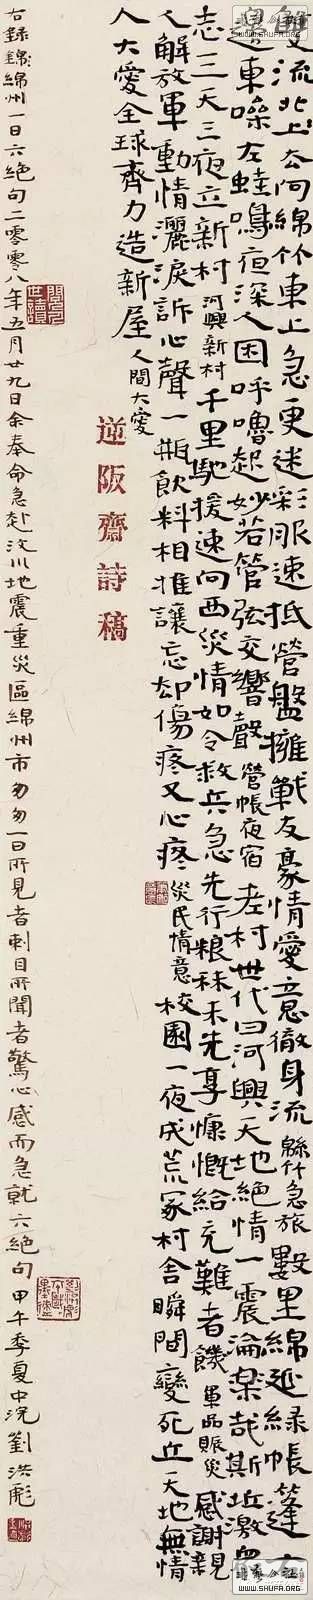 雙流北上太河綿竹東上急更迷彩服速抵營盤擁戰友豪情愛意徹身流緜竹急旅數里綿延綠帳篷
邊東噪左蛙鳴夜深人困呼嚕起妙若管弦交響聲營帳夜宿老村世代曰河興天地絕情一震淪哉斯
志三天三夜立新村河興新村千里馳援速向西災情如令救兵急先行糧秣未先享慷慨給充難者饑軍品賑災感謝親
人解放軍動情灑淚訴心聲一瓶飲料相推讓忘却傷疼又心疼災民情意校園一夜成荒冢村舍瞬間變死丘天地無情
人大愛全球齊力造新屋人間大愛
逆阪齋詩稿
右錄錦綿州一日六絕句二零零八年五月廿九日余奉命急赴汶川地震重災區綿州市匆匆一日所見者刺目所聞者驚心感而急就六絕句甲午季夏中浣劉洪彪
WWW.SHUFA.ORG
WWW.SHUFA.ORG